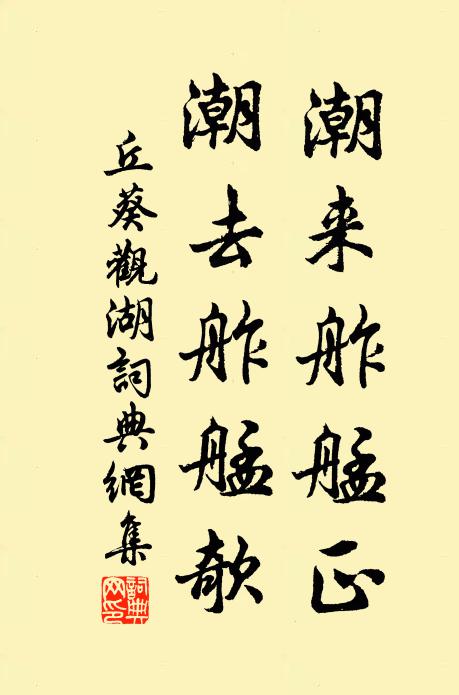 潮来舴艋正
潮去舴艋欹
丘葵觀湖詞典網集
詞典網印